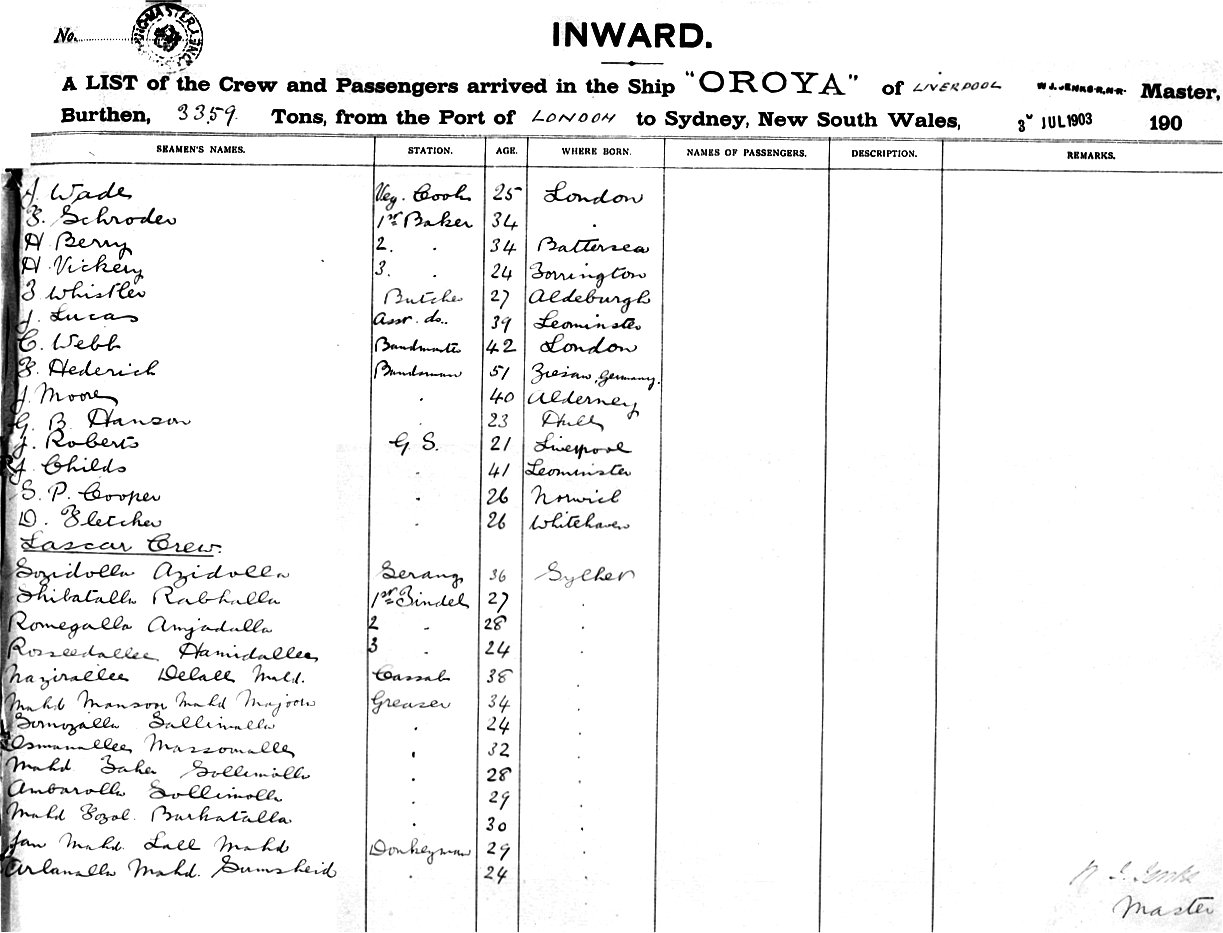 No.
INWARD.
A LIST of the Crew and Passengers arrived in the Ship "OROYA" of LIVERPOOL Master,
Burthen, 3359 Tons, from the Port of LONDON to Sydney, New South Wales, JUL 1903 190
SEAMEN'S NAMES. STATION. AGE. WHERE BORN. NAMES OF PASSENGERS. DESCRIPTION. REMARKS.
Wade Veg. Cook 25 London
F. Schroder 1st Baker 34 .
H Berry 2. . 34 Battersea
H Vickery 3. . 24 Torrington
F Whistler Butcher 27 Aldeburgh
J. Lucas Asst. do.. 39 Leominster
C. Webb Bandmaster 42 London
F. Hederich Bandsman 51 Germany.
J. Moore . 40 Alderney
G. B. Hanson . 23 Hull
J. Roberts G. S. 21 Liverpool
J. Childs . 41 Leominster
S. P. Cooper . 26 Norwich
D. Fletcher . 26 Whitehaven
Lascar Crew.
Sozidolla Azidolla Serang 36 Sylhet
Shibatalla Rabhalla 1st Tindel 27 .
Romegalla Amjadulla 2 . 28 .
Rosseedallee Hamidallee 3 . 24 .
Nazirallee Delall Mahd. Cassab 38 .
Mahd Manson Mahd Majoon Greaser 34 .
Sallimulla . 24 .
Osmanallee Massomallee . 32 .
Mahd Taher Sollimolla . 28 .
Ambarolla Sollimolla . 29 .
Mahd Fozol. Barkatalla . 30 .
Jan Mahd. Lall Mahd Donkeyman 29 .
Mahd. Sumsheid . 24 .
Master